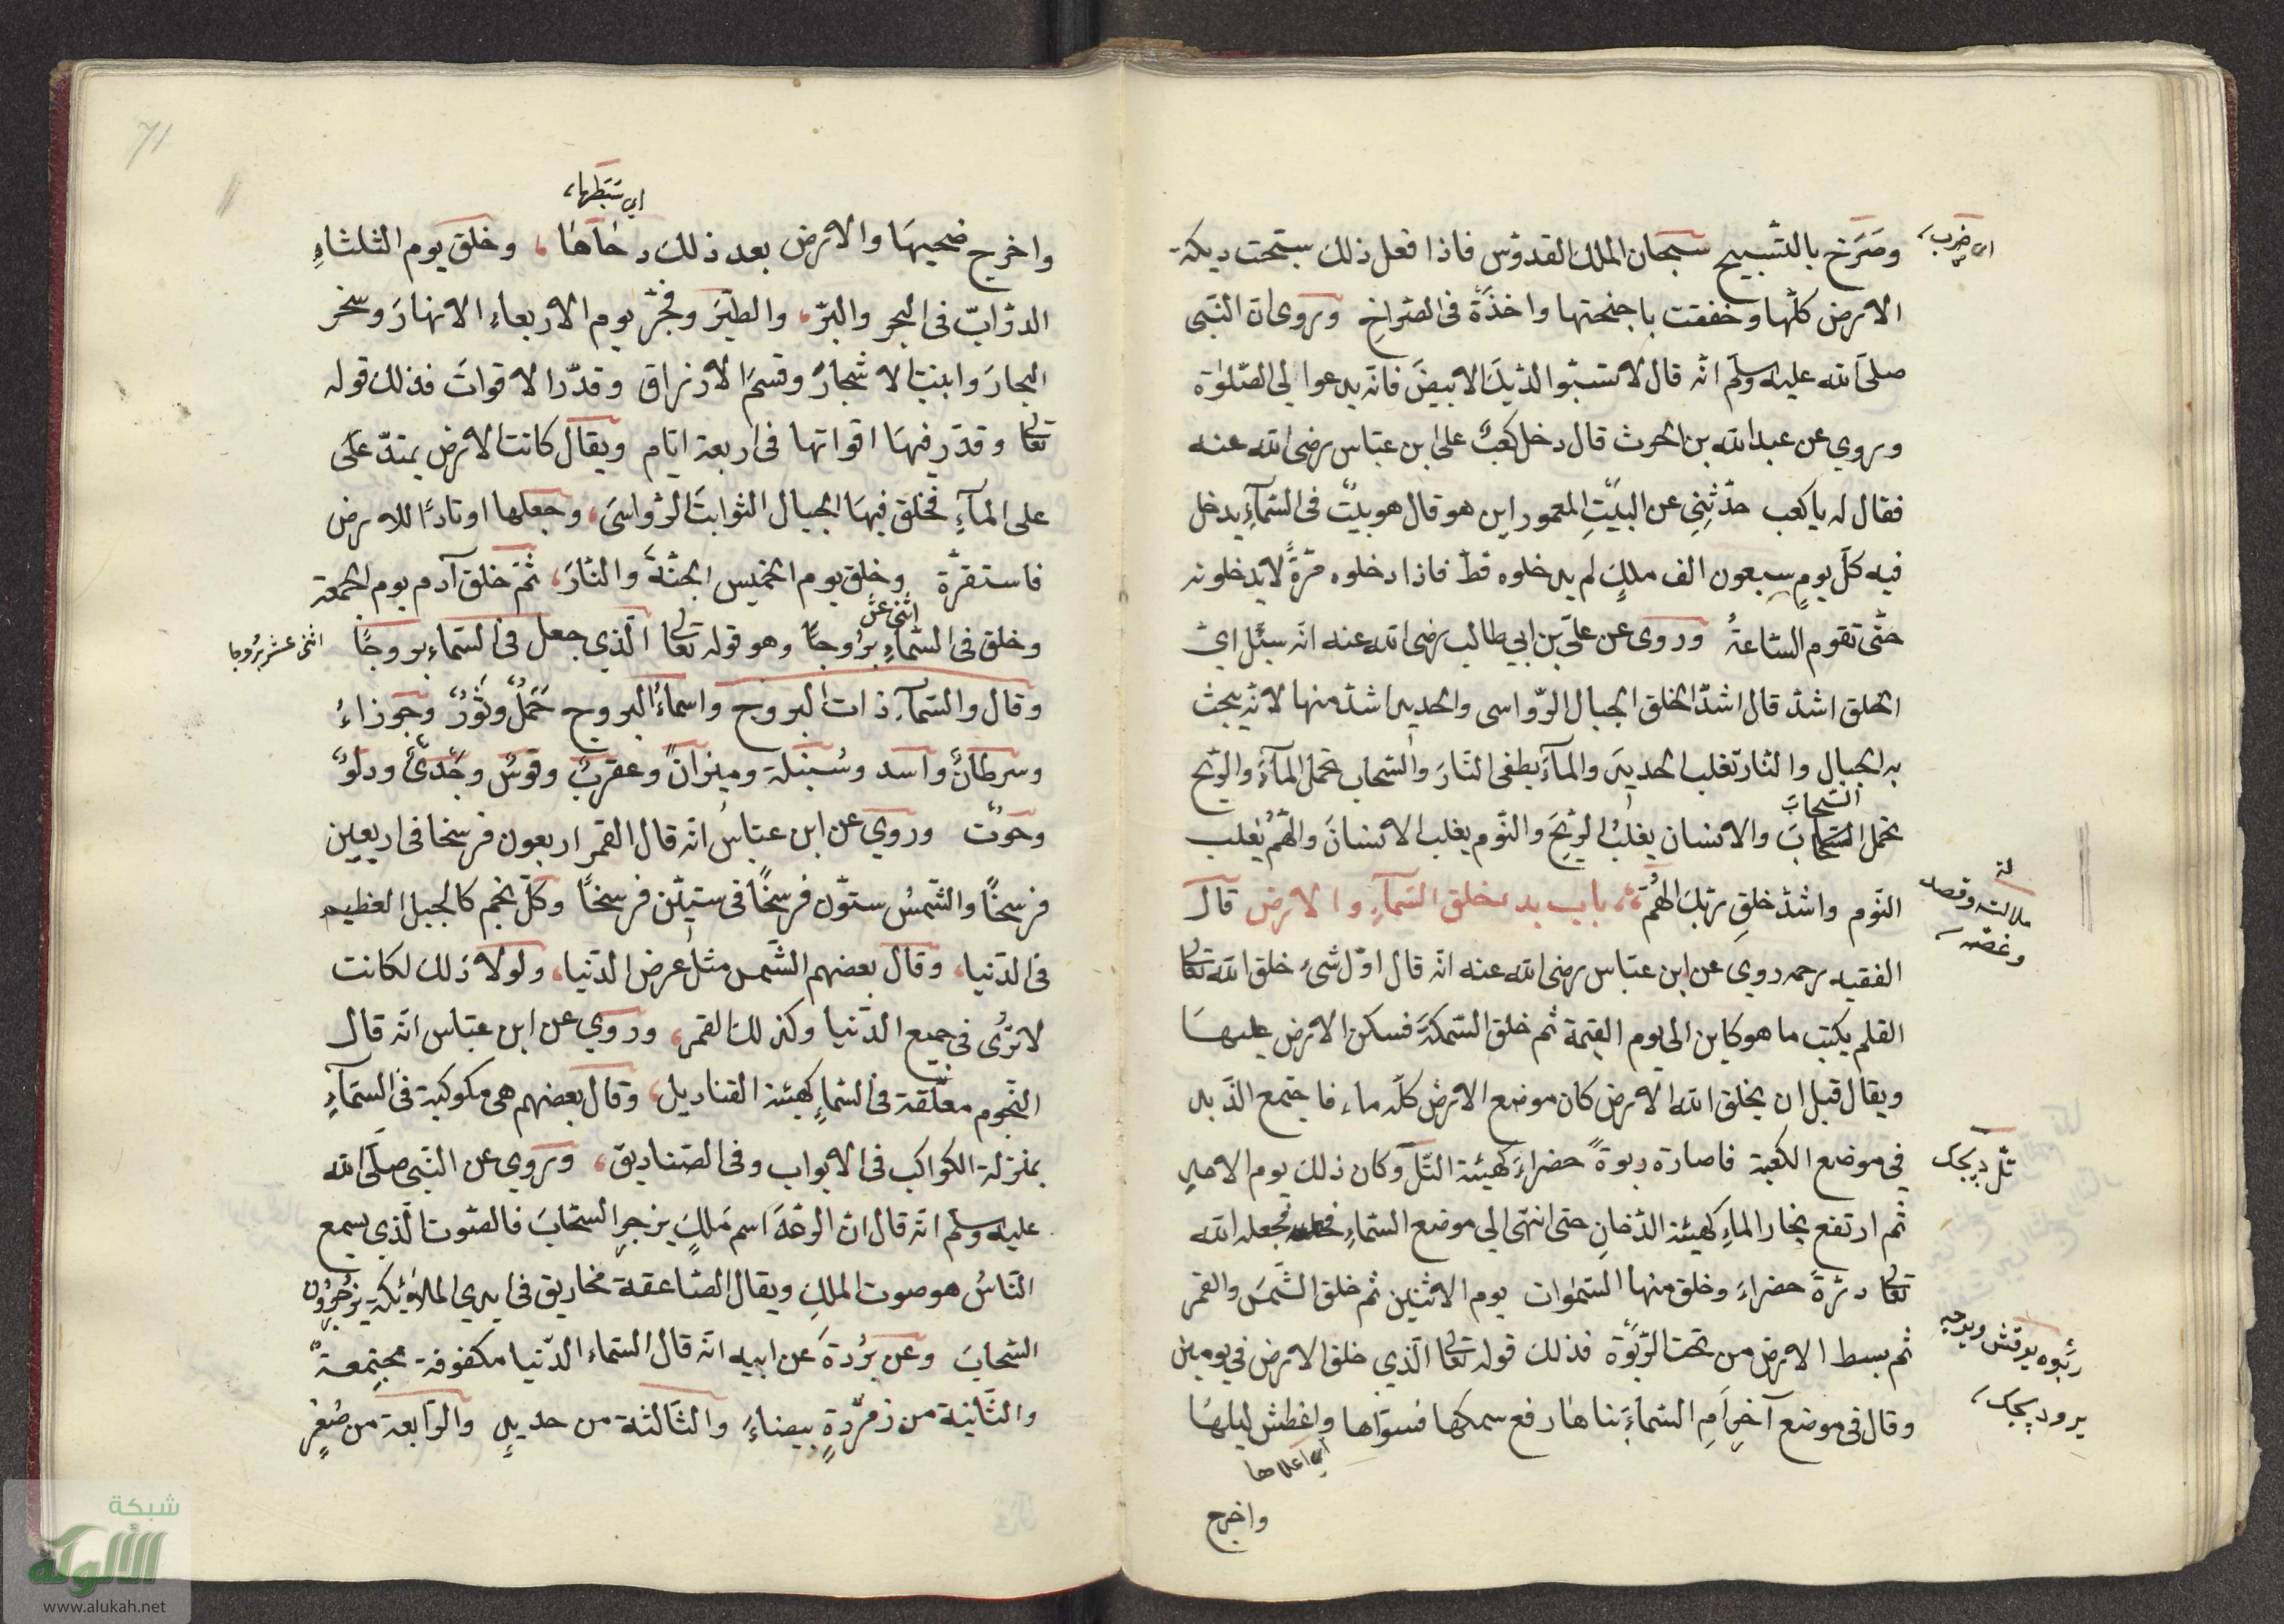 وصرخ بالتسبيح سبحان الملك القدوس فاذا فعل ذلك سبحت ديكة
اى ضرب
الارض كلها وخفقت باجنحتها واخذة فى الصراخ وروى ان النبى
صلى الله عليه وسلم انه قال لا تسبوا الديك الابيض فانه يدعوا لى الصلوة
وروي عن عبد الله بن الحرث قال دخل كعب على ابن عباس رضى الله عنه
فقال له يا كعب حدثنى عن البيت المعمور اين هو قال هو بيت فى السمآء يدخل
فيه كل يوم سبعون الف ملك لم يدخلوه قط فاذا دخلوه مرة لا يدخلونه
حتى تقوم الساعة وروى عن على بن ابى طالب رضى الله عنه انه سئل اى
الخلق اشد قال اشد الخلق الجبال الرواسى والحديد اشد منها لانه ينحت
به الجبال والنار تغلب الحديد والمآء يطفى النار والسحاب تحمل المآء والريح
السحاب
تحمل السحاب والانسان يغلب الريح والنوم يغلب الانسان والهم يغلب
النوم واشد خلق ربك الهم باب بدء خلق السمآء والارض قال
الفقيه رحمه روى عن ابن عباس رضى الله عنه انه قال اول شئ خلق الله تعا
القلم يكتب ما هو كاين الى يوم القيمة ثم خلق السمكة فسكن الارض عليها
ويقال قبل ان يخلق الله الارض كان موضع الارض كله ماء فاجتمع الذبد
فى موضع الكعبة فاصارة ربوة حضراء كهيئة التل وكان ذلك يوم الاحد
ثم ارتفع بخار الماء كهيئة الدخان حتى انتهى الى موضع السماء فجعله الله
تعا درة حضراء وخلق منها السموات يوم الاثنين ثم خلق الشمس والقمر
ثم بسط الارض من تحت الربوة فذلك قوله تعا الذى خلق الارض فى يومين
وقال فى موضع آخر ام السمآء بناها رفع سمكها فسواها واغطش ليلها
اى اعلاها
واخرج
71
اى بسطها
واخرج ضحيها والارض بعد ذلك دحاها وخلق يوم الثلثاء
الدواب فى البحر والبر والطير وفجر يوم الاربعاء الانهار وسخر
البحار وانبت الاشجار وقسم الارزاق وقدر الاقوات فذلك قوله
تعا وقدر فيها اقواتها فى اربعة ايام ويقال كانت الارض يمتد على
على المآء فخلق فيها الجبال الثوابت الرواسى وجعلها اوتادا للارض
فاستقرة وخلق يوم الخميس الجنة والنار ثم خلق آدم يوم الجمعة
اثنى عشر
وخلق فى السماء بروجا وهو قوله تعا الذى جعل فى السماء بروجا
اثنى عشر بروجا
وقال والسمآء ذات البروج واسماء البروج حمل وثور وجوزاء
وسرطان واسد وسنبلة وميزان وعقرب وقوس وجدى ودلو
وحوت وروي عن ابن عباس انه قال القمر اربعون فرسخا فى اربعين
فرسخا والشمس ستون فرسخا فى ستين فرسخا وكل نجم كالجبل العظيم
فى الدنيا وقال بعضهم الشمس مثل عرض الدنيا ولولا ذلك لكانت
لا ترى فى جميع الدنيا وكذلك القمر وروي عن ابن عباس انه قال
النجوم معلقة فى السماء كهيئة القناديل وقال بعضهم هى مكوكبة فى السمآء
بمنزلة الكواكب فى الابواب وفى الصناديق وروي عن النبى صلى الله
عليه وسلم انه قال ان الرعد اسم ملك يزجر السحاب فالصوت الذى يسمع
الناس هو صوت الملك ويقال الصاعقة مخاريق فى ايدي الملائكة يزجرون
السحاب وعن بردة عن ابيه انه قال السماء الدنيا مكفوفة مجتمعة
والثانية من زمردة بيضاء والثالثة من حديد والرابعة من صفر
شبكة
الألوكة
www.alukah.net